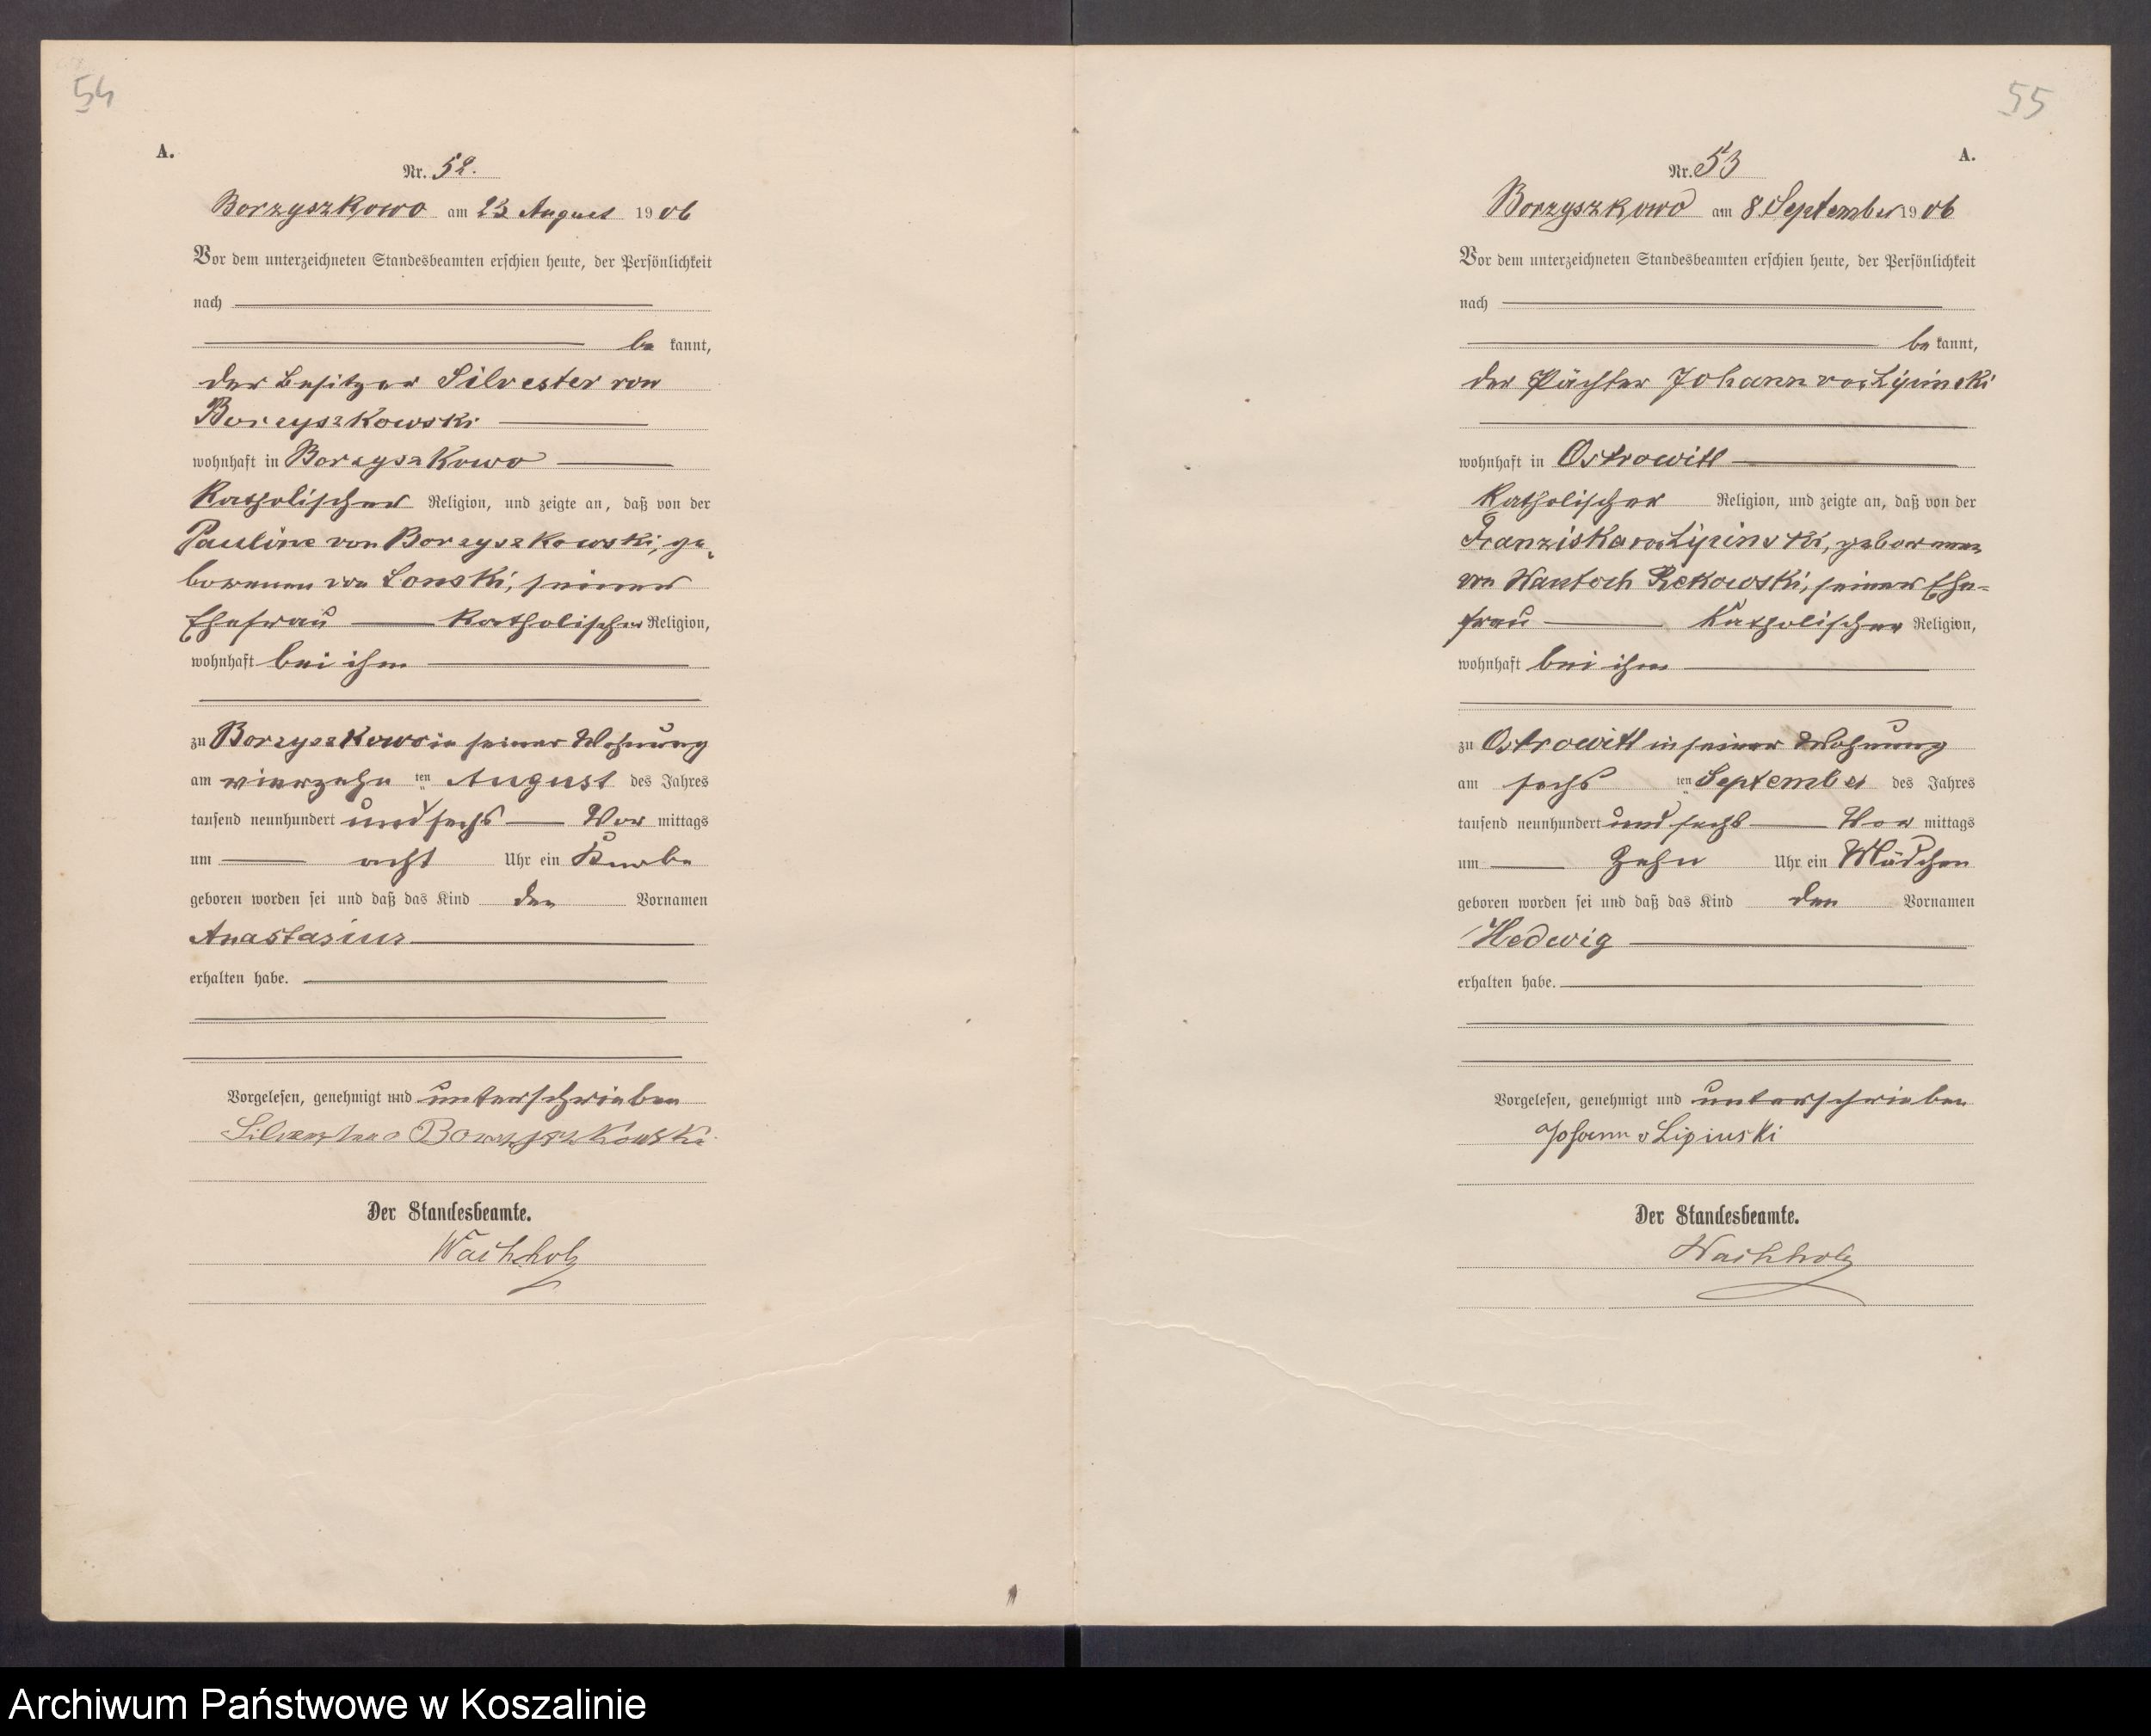 54
A.
Nr. 52.
Borzyszkowo am 23 August 1906
Vor dem unterzeichneten Standesbeamten erschien heute, der Persönlichkeit
nach
be kannt,
der Besitzer Silvester von
Borzyszkowski
wohnhaft in Borzyszkowo
katholischer Religion, und zeigte an, daß von der
Pauline von Borzyszkowski, ge-
borenen von Lonski, seiner
Ehefrau katholischer Religion,
wohnhaft bei ihm
zu Borzyszkowo in seiner Wohnung
am vierzehn ten August des Jahres
tausend neunhundert und sechs Vor mittags
um acht Uhr ein Knabe
geboren worden sei und daß das Kind den Vornamen
Anastasius
erhalten habe.
Vorgelesen, genehmigt und unterschrieben
Borzyszkowski
Der Standesbeamte.
Wachholz
55
A.
Nr. 53
Borzyszkowo am 8 September 1906
Vor dem unterzeichneten Standesbeamten erschien heute, der Persönlichkeit
nach
be kannt,
der Pächter Johann von Lipinski
wohnhaft in Ostrowitt
katholischer Religion, und zeigte an, daß von der
Franziska von Lipinski, geborenen
von Wantoch Rekowski, seiner Ehe-
frau katholischer Religion,
wohnhaft bei ihm
zu Ostrowitt in seiner Wohnung
am sechs ten September des Jahres
tausend neunhundert und sechs Vor mittags
um zehn Uhr ein Mädchen
geboren worden sei und daß das Kind den Vornamen
Hedwig
erhalten habe.
Vorgelesen, genehmigt und unterschrieben
Johann v Lipinski
Der Standesbeamte.
Wachholz
Archiwum Państwowe w Koszalinie